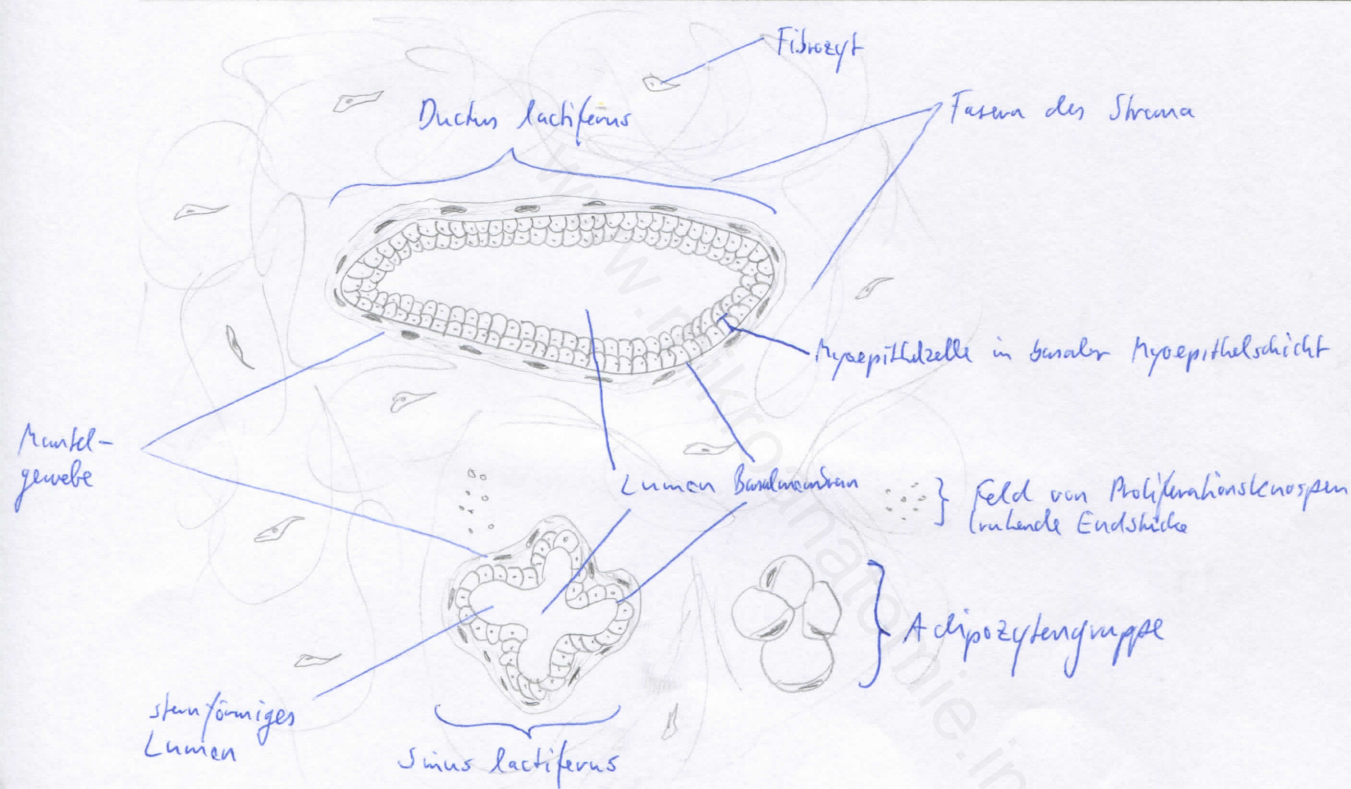 Fibrozyt
Ductus lactiferus
Fasern des Stroma
Myoepithelzelle in basaler Myoepithelschicht
Mantel-
gewebe
Lumen
Basalmembran
Feld von Proliferationsknospen
ruhende Endstücke
Adipozytengruppe
sternförmiges
Lumen
Sinus lactiferus
www.mikroanatomie.in